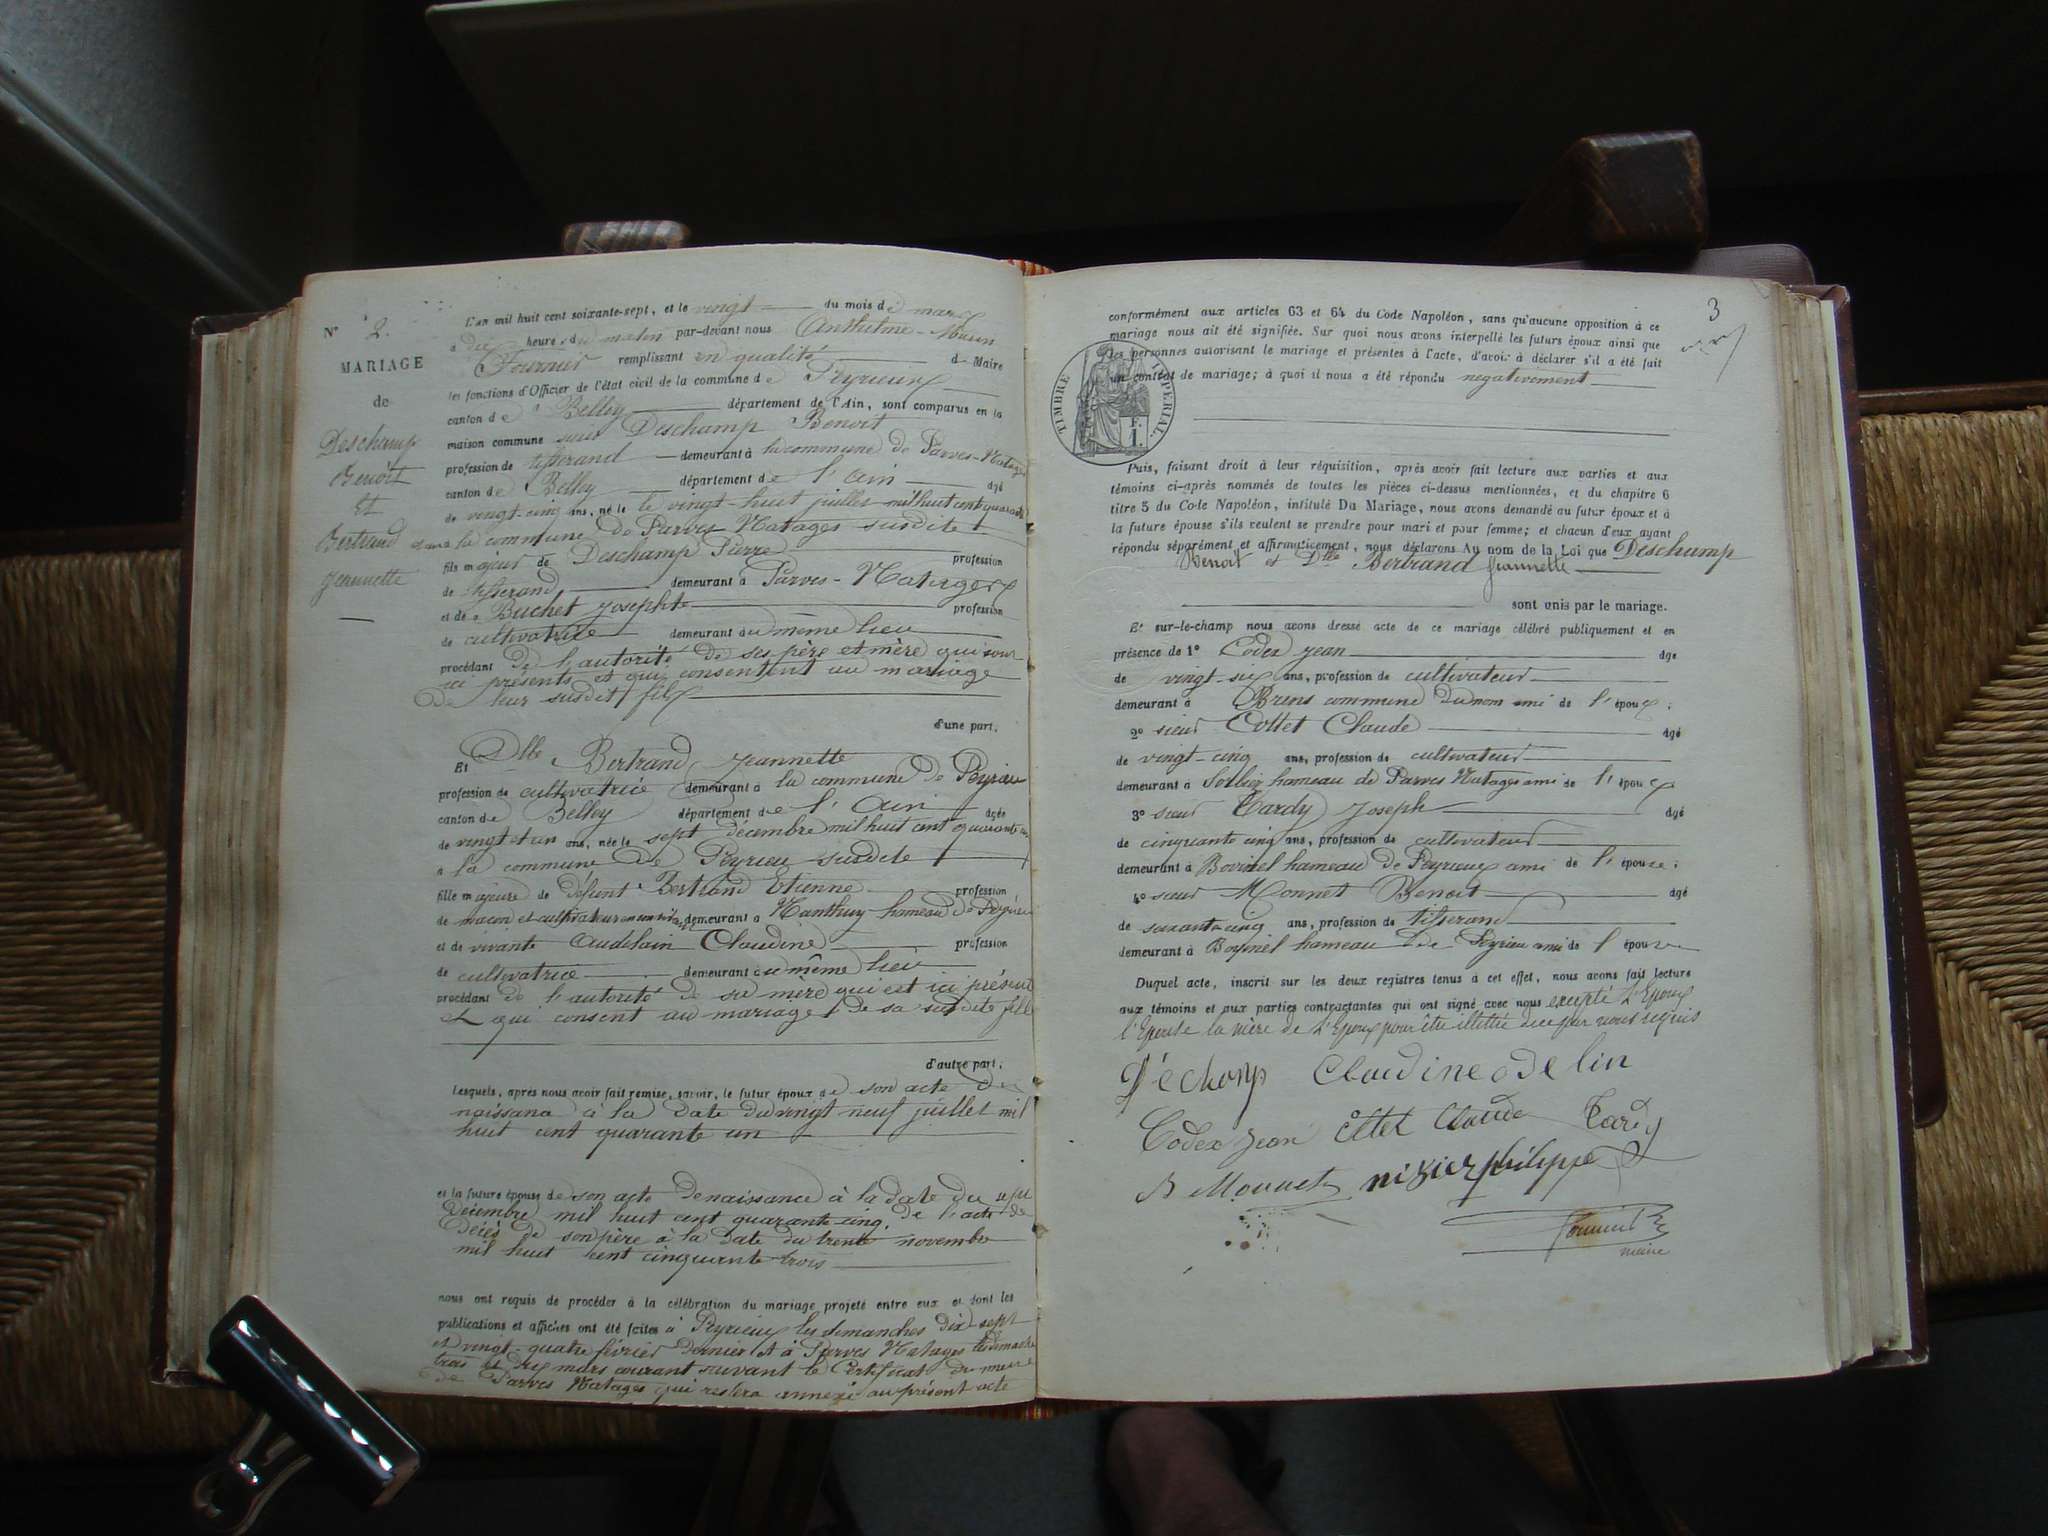 N° 2.
MARIAGE
de
Deschamp
Benoit
Et
Bertrand
Jeannette
L'an mil huit cent soixante-sept, et le vingt du mois de mars
à dix heures du matin par-devant nous Anthelme
Fournier remplissant en qualité de Maire
les fonctions d'Officier de l'état civil de la commune de Peyrieux
canton de Belley département de l'Ain, sont comparus en la
maison commune sieur Deschamp Benoit
profession de tisserand demeurant à la commune de Parves-Natages
canton de Belley département de l'ain âgé
de vingt-cinq ans, né le le vingt-huit juillet mil huit cent quarante
dans la commune de Parves Natages susdite
fils majeur de Deschamp Pierre profession
de tisserand demeurant à Parves-Natages
et de Buchet Josephte profession
de cultivatrice demeurant du même lieu
procédant de l'autorité de ses père et mère qui sont
ici présents et qui consentent au mariage
de leur susdit fils
d'une part,
Et Dlle Bertrand Jeannette
profession de cultivatrice demeurant à la commune de Peyrieu
canton de Belley département de l'Ain âgée
de vingt et un ans, née le sept décembre mil huit cent quarante cinq
à la commune de Peyrieu susdite
fille majeure de défunt Bertrand Etienne profession
de maçon et cultivateur demeurant à Nanthuy hameau de Peyrieu
et de vivante Audelain Claudine profession
de cultivatrice demeurant au même lieu
procédant de l'autorité de sa mère qui est ici présente
et qui consent au mariage de sa susdite fille
d'autre part,
Lesquels, après nous avoir fait remise, savoir, le futur époux de son acte de
naissance à la date du vingt neuf juillet mil
huit cent quarante un
et la future épouse de son acte de naissance à la date du sept
décembre mil huit cent quarante-cinq, de l'acte de
décès de son père à la date du trente novembre
mil huit cent cinquante trois
nous ont requis de procéder à la célébration du mariage projeté entre eux et dont les
publications et affiches ont été faites à Peyrieux les dimanches dix-sept
et vingt-quatre février dernier et à Parves Natages les dimanches
trois et dix mars courant suivant le Certificat du maire
de Parves Natages qui restera annexé au présent acte
3
conformément aux articles 63 et 64 du Code Napoléon, sans qu'aucune opposition à ce
mariage nous ait été signifiée. Sur quoi nous avons interpellé les futurs époux ainsi que
les personnes autorisant le mariage et présentes à l'acte, d'avoir à déclarer s'il a été fait
un contrat de mariage; à quoi il nous a été répondu negativement
TIMBRE IMPERIAL.
1 F.
Puis, faisant droit à leur réquisition, après avoir fait lecture aux parties et aux
témoins ci-après nommés de toutes les pièces ci-dessus mentionnées, et du chapitre 6
titre 5 du Code Napoléon, intitulé Du Mariage, nous avons demandé au futur époux et à
la future épouse s'ils veulent se prendre pour mari et pour femme; et chacun d'eux ayant
répondu séparément et affirmativement, nous déclarons Au nom de la Loi que Deschamp
Benoit et Dlle Bertrand Jeannette
sont unis par le mariage.
Et sur-le-champ nous avons dressé acte de ce mariage célébré publiquement et en
présence de 1° Codex Jean âgé
de vingt-six ans, profession de cultivateur
demeurant à Brens commune du nom ami de l'époux;
2° sieur Cottet Claude âgé
de vingt-cinq ans, profession de cultivateur
demeurant à Sorbiz hameau de Parves Natages ami de l'époux
3° sieur Tardy Joseph âgé
de cinquante cinq ans, profession de cultivateur
demeurant à Bovinel hameau de Peyrieux ami de l'épouse;
4° sieur Monnet Benoit âgé
de soixante-cinq ans, profession de tisserand
demeurant à Bovinel hameau de Peyrieu ami de l'épouse
Duquel acte, inscrit sur les deux registres tenus à cet effet, nous avons fait lecture
aux témoins et aux parties contractantes qui ont signé avec nous excepté L'Epoux
l'Epouse la mère de L'Epoux pour être illettrés de ce par nous requis
Déchomp Claudine odelin
Codex Jean Cottet Claude Tardy
B Monnet nizier philippe
Fournier
maire